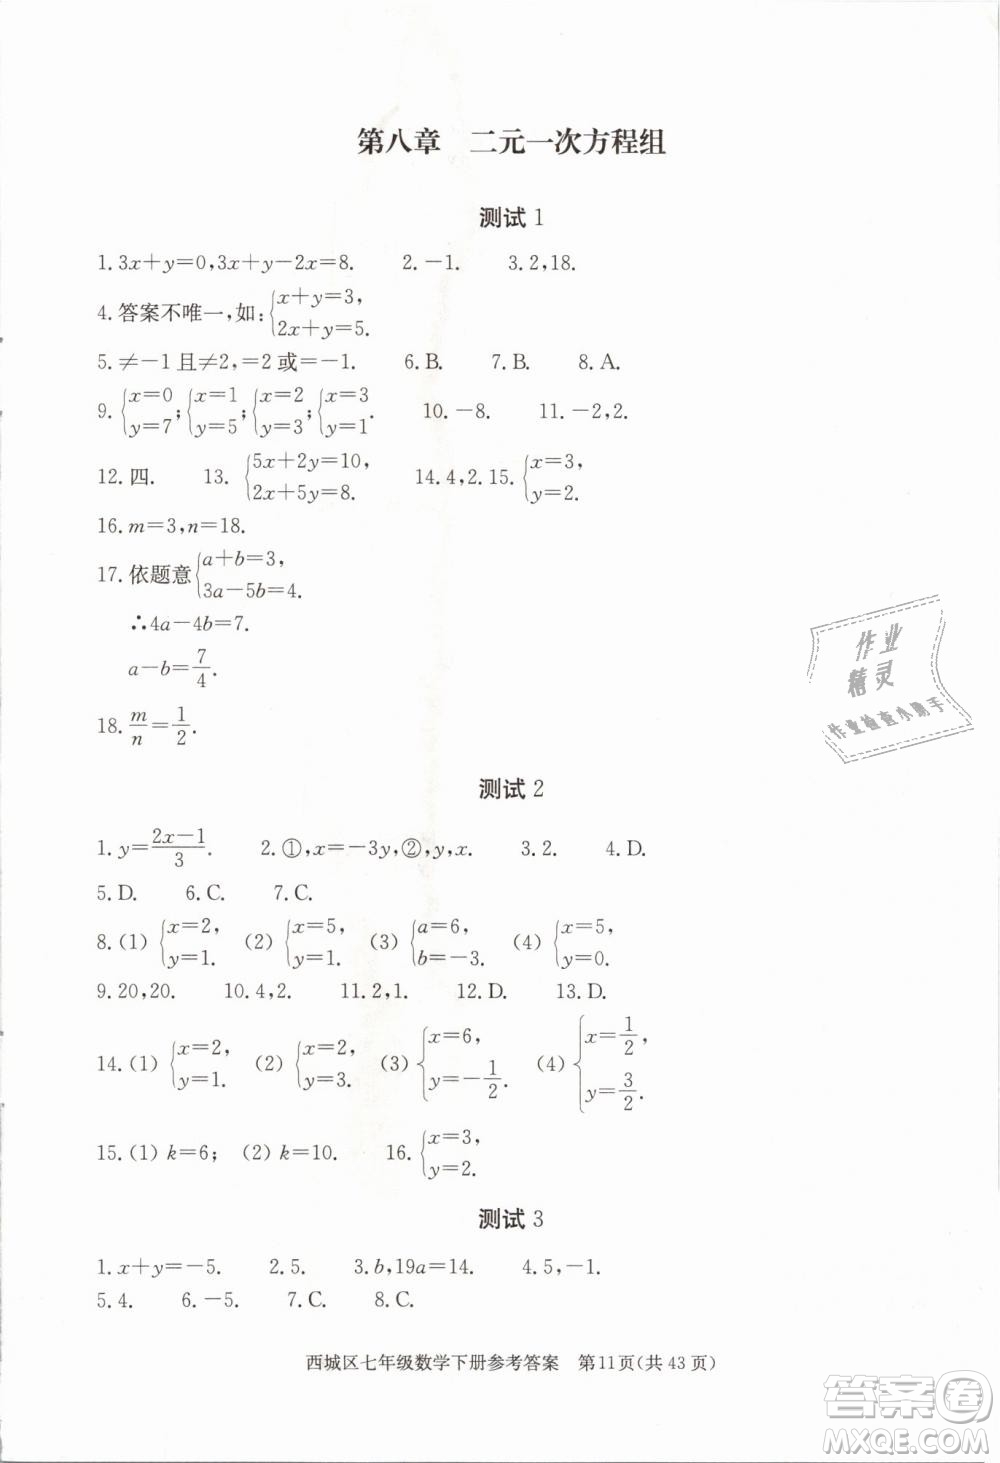 第八章　二元一次方程组
测试 1
1. 3x+y=0, 3x+y-2x=8.　2. -1.　3. 2, 18.
4. 答案不唯一, 如: {x+y=3, 2x+y=5.
5. ≠-1 且≠2, =2 或=-1.　6. B.　7. B.　8. A.
9. {x=0 y=7; {x=1 y=5; {x=2 y=3; {x=3 y=1.　10. -8.　11. -2, 2.
12. 四.　13. {5x+2y=10, 2x+5y=8.　14. 4, 2.　15. {x=3, y=2.
16. m=3, n=18.
17. 依题意 {a+b=3, 3a-5b=4.
∴4a-4b=7.
a-b=7/4.
18. m/n=1/2.
测试 2
1. y=(2x-1)/3.　2. ①, x=-3y, ②, y, x.　3. 2.　4. D.
5. D.　6. C.　7. C.
8. (1) {x=2, y=1.　(2) {x=5, y=1.　(3) {a=6, b=-3.　(4) {x=5, y=0.
9. 20, 20.　10. 4, 2.　11. 2, 1.　12. D.　13. D.
14. (1) {x=2, y=1.　(2) {x=2, y=3.　(3) {x=6, y=-1/2.　(4) {x=1/2, y=3/2.
15. (1) k=6;　(2) k=10.　16. {x=3, y=2.
测试 3
1. x+y=-5.　2. 5.　3. b, 19a=14.　4. 5, -1.
5. 4.　6. -5.　7. C.　8. C.
西城区七年级数学下册参考答案　第11页(共 43 页)
作业
精灵
作业检查小助手
答案卷
MXQE.COM